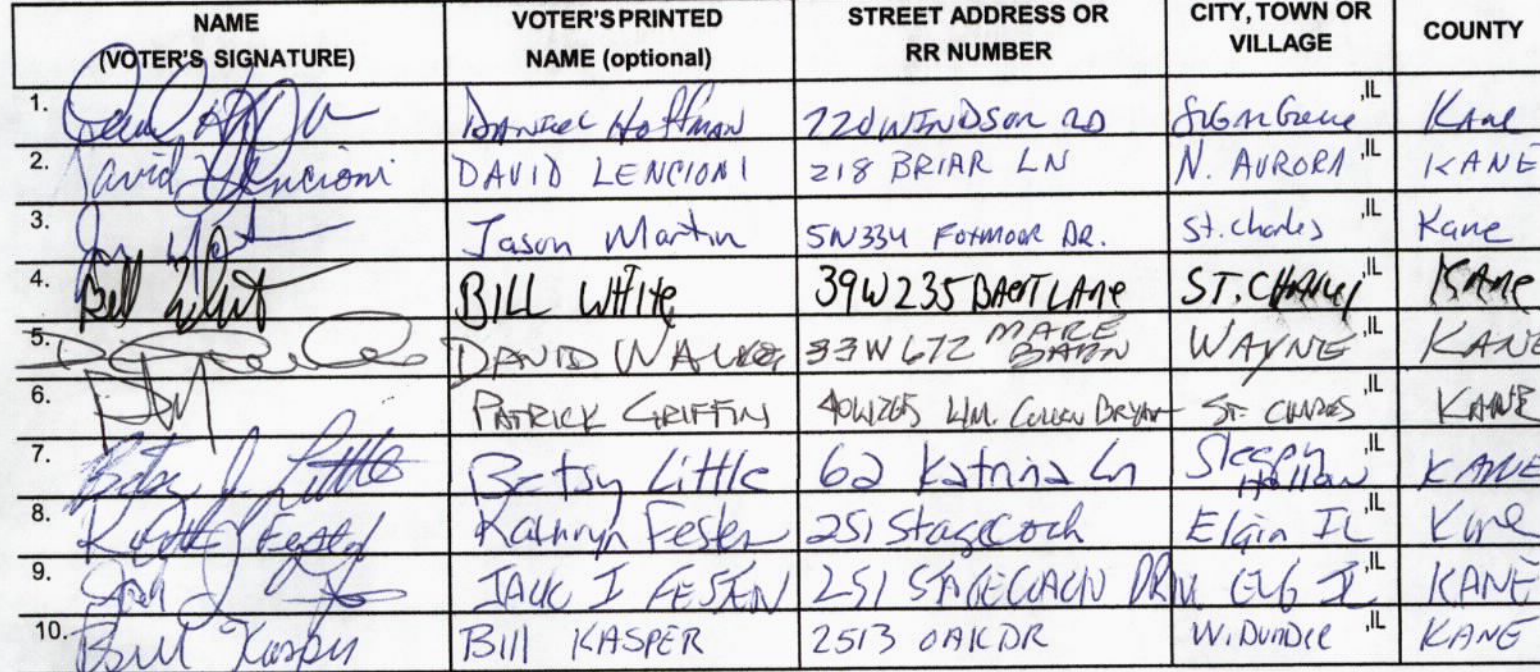 NAME (VOTER'S SIGNATURE) VOTER'S PRINTED NAME (optional) STREET ADDRESS OR RR NUMBER CITY, TOWN OR VILLAGE COUNTY
1. DANIEL Hoffman 720 WINDSOR RD Sugar Grove ,IL Kane
2. David Lencioni DAVID LENCIONI 218 BRIAR LN N. AURORA ,IL KANE
3. Jason Martin 5N334 FOXMOOR DR. St. Charles ,IL Kane
4. Bill White BILL WHITE 39W235 BAERT LANE ST. CHARLES ,IL KANE
5. DAVID WALKER 33W672 MARE BARN WAYNE ,IL KANE
6. PATRICK GRIFFIN 40W265 WM. CULLEN BRYANT ST. CHARLES ,IL KANE
7. Betsy J. Little Betsy Little 62 Katrina Ln Sleepy Hollow ,IL KANE
8. Kathryn Festen 251 Stagecoch Elgin IL ,IL Kane
9. JACK J FESTEN 251 STAGECOACH DR IL ,IL KANE
10. Bill Kasper Bill KASPER 2513 OAK DR W. DUNDEE ,IL KANE